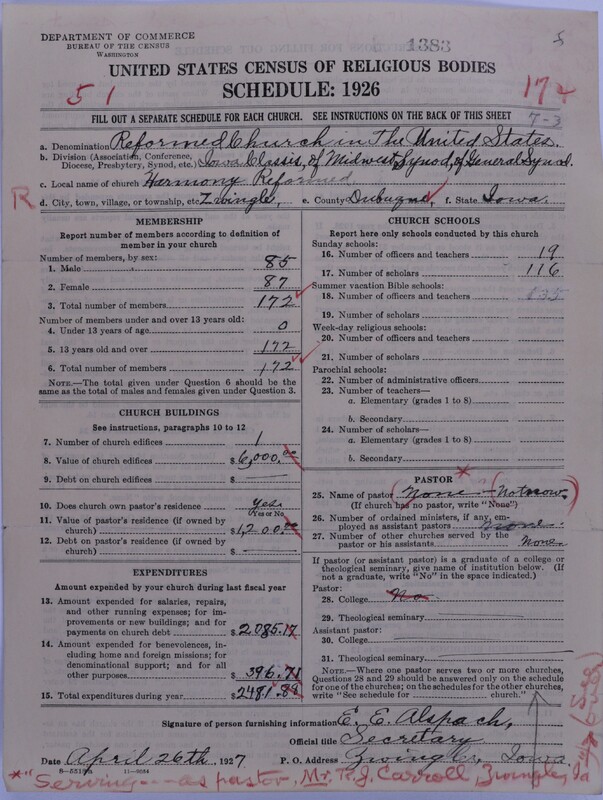 DEPARTMENT OF COMMERCE
BUREAU OF THE CENSUS
WASHINGTON
1383
5
UNITED STATES CENSUS OF RELIGIOUS BODIES
SCHEDULE: 1926
51
17
FILL OUT A SEPARATE SCHEDULE FOR EACH CHURCH. SEE INSTRUCTIONS ON THE BACK OF THIS SHEET
7-3
a. Denomination Reformed Church in The United States.
b. Division (Association, Conference, Diocese, Presbytery, Synod, etc.) Iowa Classis, of Midwest Synod, of General Synod.
c. Local name of church Harmony Reformed
R
d. City, town, village, or township, etc. Zwingle, e. County Dubuque, f. State Iowa.
MEMBERSHIP
Report number of members according to definition of member in your church
Number of members, by sex:
1. Male 85
2. Female 87
3. Total number of members 172
Number of members under and over 13 years old:
4. Under 13 years of age 0
5. 13 years old and over 172
6. Total number of members 172
NOTE.—The total given under Question 6 should be the same as the total of males and females given under Question 3.
CHURCH BUILDINGS
See instructions, paragraphs 10 to 12
7. Number of church edifices 1
8. Value of church edifices $ 6,000.00
9. Debt on church edifices $ —
10. Does church own pastor's residence Yes
(Yes or No)
11. Value of pastor's residence (if owned by church) $ 1,200.00
12. Debt on pastor's residence (if owned by church) $ —
EXPENDITURES
Amount expended by your church during last fiscal year
13. Amount expended for salaries, repairs, and other running expenses; for improvements or new buildings; and for payments on church debt $ 2,085.17
14. Amount expended for benevolences, including home and foreign missions; for denominational support; and for all other purposes $ 396.71
15. Total expenditures during year $ 2481.88
CHURCH SCHOOLS
Report here only schools conducted by this church
Sunday schools:
16. Number of officers and teachers 19
17. Number of scholars 116
Summer vacation Bible schools:
18. Number of officers and teachers 135
19. Number of scholars
Week-day religious schools:
20. Number of officers and teachers
21. Number of scholars
Parochial schools:
22. Number of administrative officers
23. Number of teachers—
a. Elementary (grades 1 to 8)
b. Secondary
24. Number of scholars—
a. Elementary (grades 1 to 8)
b. Secondary
PASTOR *
25. Name of pastor None - (Not now)
(If church has no pastor, write "None")
26. Number of ordained ministers, if any, employed as assistant pastors None.
27. Number of other churches served by the pastor or his assistants None
If pastor (or assistant pastor) is a graduate of a college or theological seminary, give name of institution below. (If not a graduate, write "No" in the space indicated.)
Pastor:
28. College No
29. Theological seminary
Assistant pastor:
30. College
31. Theological seminary
NOTE.—Where one pastor serves two or more churches, Questions 28 and 29 should be answered only on the schedule for one of the churches; on the schedules for the other churches, write "See schedule for church."
Signature of person furnishing information E. E. Alspach,
Official title Secretary
Date April 26th, 1927. P. O. Address Zwingle, Iowa.
11—9084
*"Serving --- as pastor, Mr. R. J. Carroll Zwingle, Ia